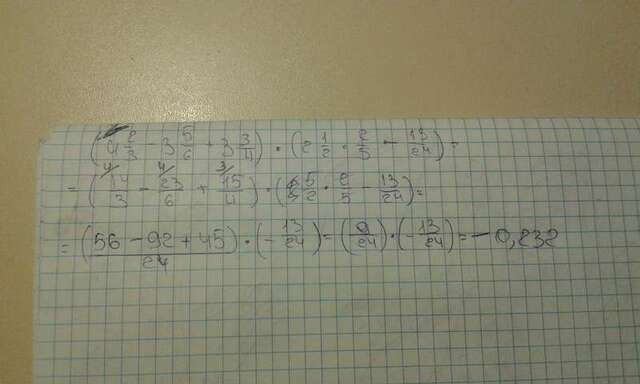 (4 2/3 - 3 5/6 + 3 3/4) · (2 1/2 · 2/5 - 13/24) =
= (14/3 - 23/6 + 15/4) · (5/2 · 2/5 - 13/24) =
= ((56 - 92 + 45)/24) · (- 13/24) = (9/24) · (- 13/24) = - 0,232